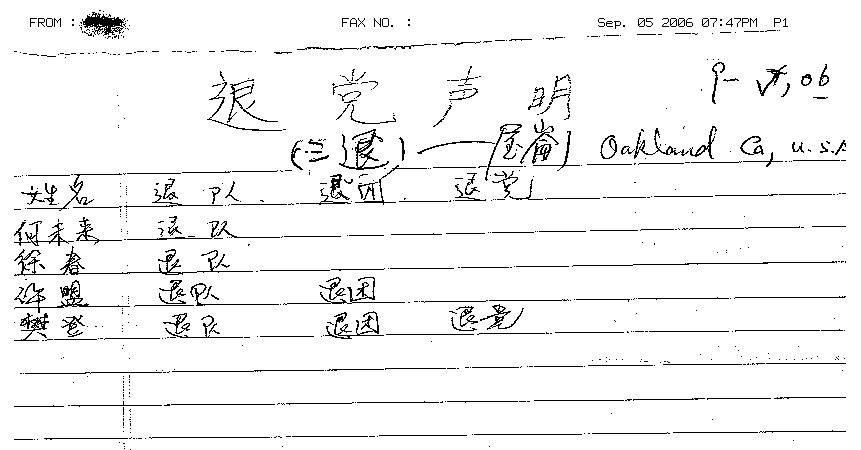 FROM : FAX NO. : Sep. 05 2006 07:47PM P1
退党声明 9-5,06
(三退)——屋崙 Oakland Ca, U.S.A
姓名 退队 退团 退党
何未来 退队
徐春 退队
许盟 退队 退团
樊登 退队 退团 退党